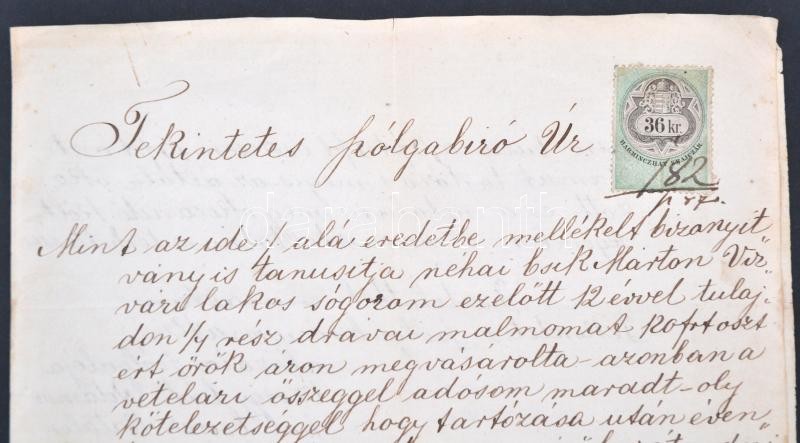 Tekintetes pólgabiró Úr
36 kr.
HARMINCZHAT KRAJCZÁR
182
Mint az ide / alá eredetbe mellékelt bizonyit
vány is tanusitja néhai Csik Márton Viz„
vári lakos sógorom ezelőtt 12 évvel tulaj„
don 1/4 rész drávai malmomat
ért örök áron megvásárolta – azonban a
vételári összeggel adosom maradt – oly
kötelezetséggel hogy tartózása után éven„